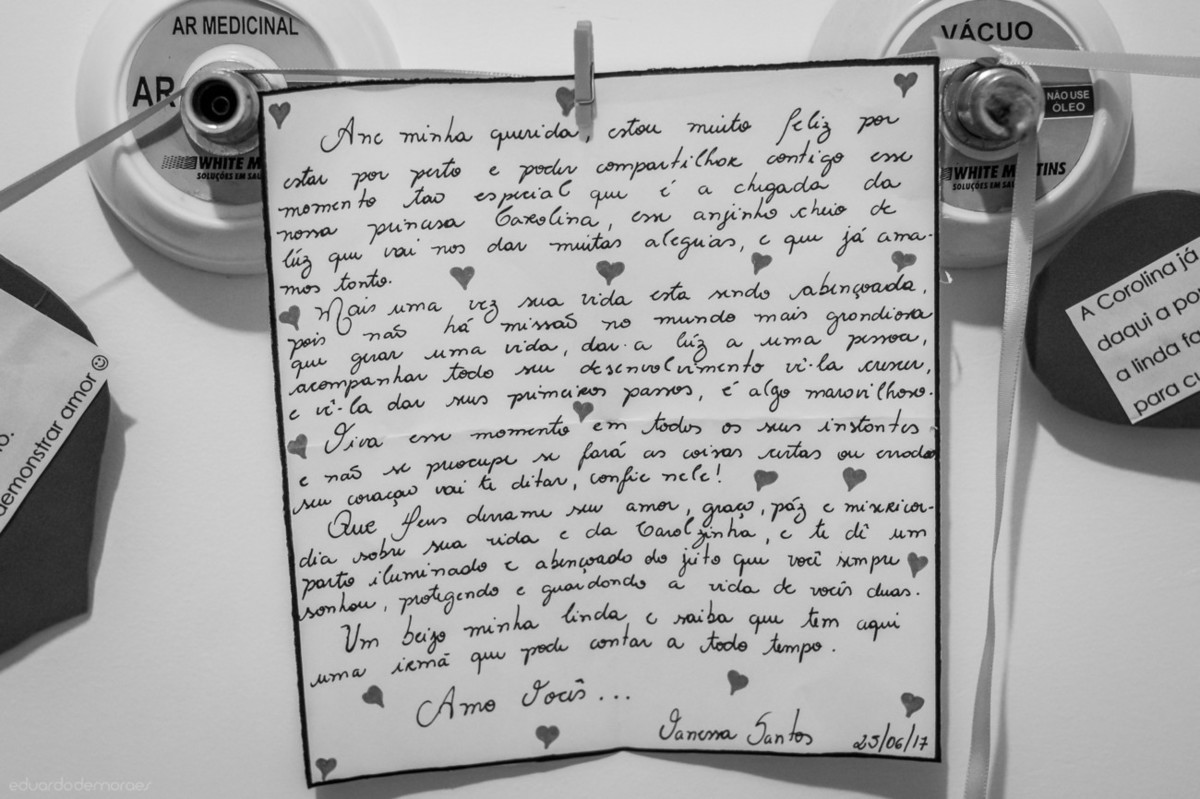 AR MEDICINAL
AR
WHITE M
SOLUÇÕES EM SAÚ
VÁCUO
NÃO USE
ÓLEO
WHITE MARTINS
SOLUÇÕES EM SAÚ
Ane minha querida, estou muito feliz por
estar por perto e poder compartilhar contigo esse
momento tao especial que é a chegada da
nossa princesa Carolina, esse anjinho cheio de
lúz que vai nos dar muitas alegrias, e que já ama-
mos tanto.
Mais uma vez sua vida esta sendo abençoada,
pois não há missão no mundo mais grandiosa
que gerar uma vida, dar a lúz a uma pessoa,
acompanhar todo seu desenvolvimento vê-la crescer,
e vê-la dar seus primeiros passos, é algo maravilhoso.
Viva esse momento em todos os seus instantes
e não se preocupe se fará as coisas certas ou erradas
seu coração vai te ditar, confie nele!
Que Deus derrame seu amor, graça, páz e misericor-
dia sobre sua vida e da Carolzinha, e te dê um
parto iluminado e abençoado do jeito que você sempre
sonhou, protegendo e guardando a vida de vocês duas.
Um beijo minha linda, e saiba que tem aqui
uma irmã que pode contar a todo tempo.
Amo Vocês...
Vanessa Santos 25/06/17
o.
demonstrar amor ☺
A Carolina já
daqui a po
a linda fa
para cu
eduardodemoraes